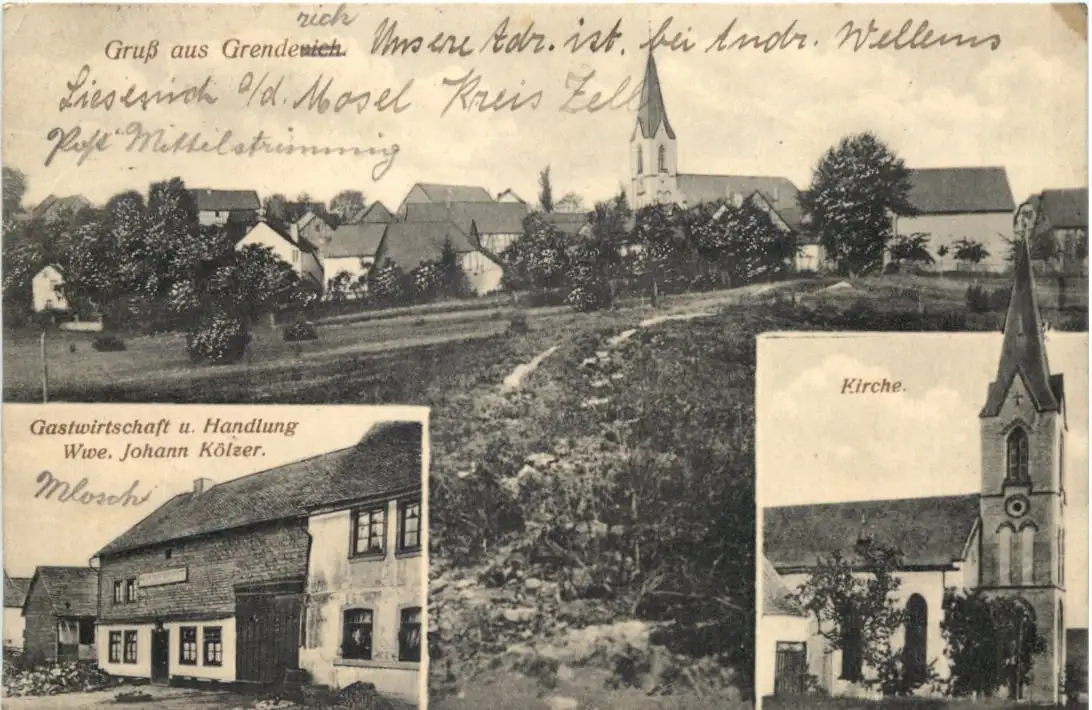 rich
Gruß aus Grendenich. Unsere Adr. ist. bei Andr. Wellems
Liesenich a/d. Mosel Kreis Zell
Post Mittelstrimmig
Kirche.
Gastwirtschaft u. Handlung
Wwe. Johann Kölzer.
Mlosch